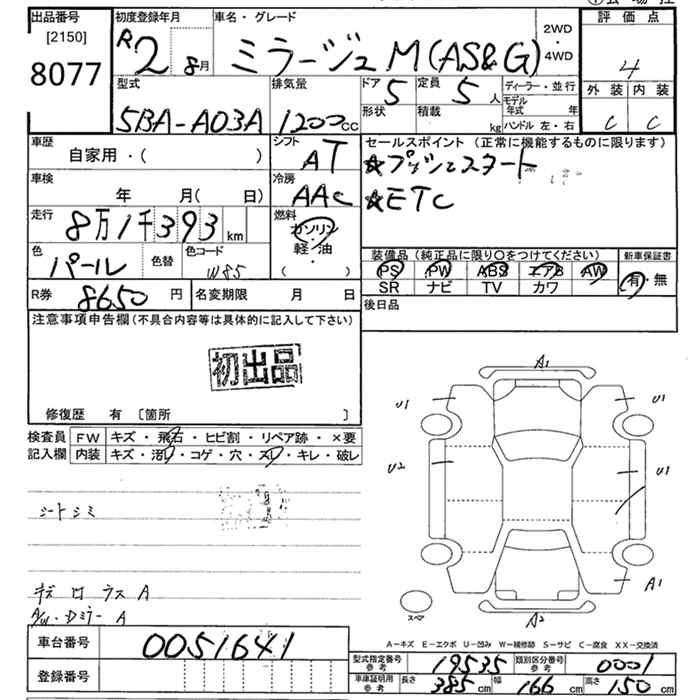 出品番号
[2150]
8077
初度登録年月
R2 8月
車名・グレード
ミラージュM(AS&G)
2WD
・
4WD
評価点
4
外装 内装
C C
型式
5BA-A03A
排気量
1200cc
ドア 5
形状
定員 5 人
積載 kg
ディーラー・並行
モデル年式 年
ハンドル 左・右
車歴
自家用・( )
シフト
AT
セールスポイント(正常に機能するものに限ります)
☆プッシュスタート
☆ETC
車検
年 月( 日)
冷房
AAC
走行
8万1千393km
燃料
ガソリン
軽・油
・( )
色
パール
色替
色コード
W85
装備品(純正品に限り○をつけてください)
PS PW ABS エアB AW
SR ナビ TV カワ
新車保証書
有・無
R券 8650円
名変期限 月 日
後日品
注意事項申告欄(不具合内容等は具体的に記入して下さい)
初出品
修復歴 有〔箇所 〕
検査員
記入欄
FW キズ・飛石・ヒビ割・リペア跡・×要
内装 キズ・汚レ・コゲ・穴・スレ・キレ・破レ
シートシミ
A/W・Dミラー A
A1
U1
U1
U2
U1
A1
A2
スペア
A-キズ E-エクボ U-凹み W-補修跡 S-サビ C-腐食 XX-交換済
車台番号 0051641
登録番号
型式指定番号 参考 19535
類別区分番号 参考 0001
車庫証明用 参考 長さ 385cm 幅 166cm 高さ 150cm